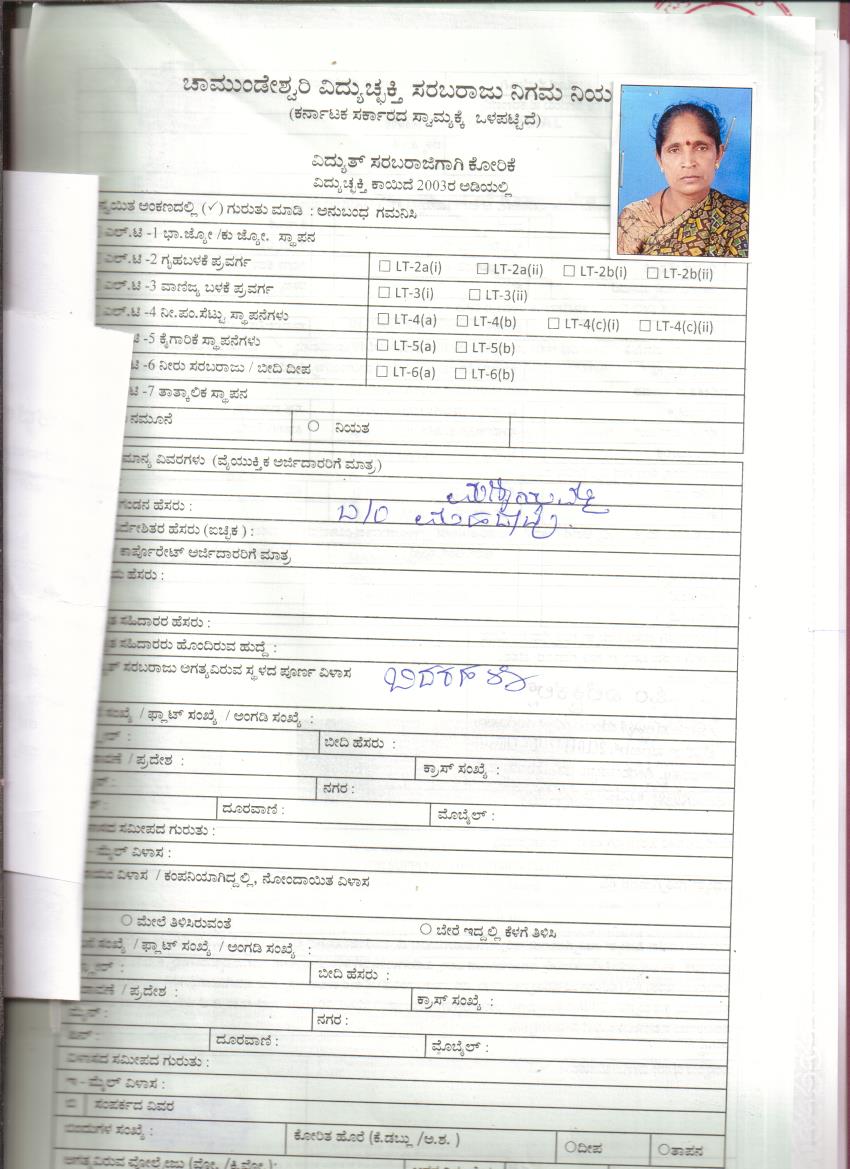 ಚಾಮುಂಡೇಶ್ವರಿ ವಿದ್ಯುಚ್ಛಕ್ತಿ ಸರಬರಾಜು ನಿಗಮ ನಿಯ
(ಕರ್ನಾಟಕ ಸರ್ಕಾರದ ಸ್ವಾಮ್ಯಕ್ಕೆ ಒಳಪಟ್ಟಿದೆ)
ವಿದ್ಯುತ್ ಸರಬರಾಜಿಗಾಗಿ ಕೋರಿಕೆ
ವಿದ್ಯುಚ್ಛಕ್ತಿ ಕಾಯಿದೆ 2003ರ ಅಡಿಯಲ್ಲಿ
ಅಂಕಣದಲ್ಲಿ (✓) ಗುರುತು ಮಾಡಿ : ಅನುಬಂಧ ಗಮನಿಸಿ
ಎಲ್.ಟಿ -1 ಭಾ.ಜ್ಯೋ /ಕು ಜ್ಯೋ. ಸ್ಥಾಪನ
ಎಲ್.ಟಿ -2 ಗೃಹಬಳಕೆ ಪ್ರವರ್ಗ ☐ LT-2a(i) ☐ LT-2a(ii) ☐ LT-2b(i) ☐ LT-2b(ii)
ಎಲ್.ಟಿ -3 ವಾಣಿಜ್ಯ ಬಳಕೆ ಪ್ರವರ್ಗ ☐ LT-3(i) ☐ LT-3(ii)
ಎಲ್.ಟಿ -4 ನೀ.ಪಂ.ಸೆಟ್ಟು ಸ್ಥಾಪನೆಗಳು ☐ LT-4(a) ☐ LT-4(b) ☐ LT-4(c)(i) ☐ LT-4(c)(ii)
ಟಿ -5 ಕೈಗಾರಿಕೆ ಸ್ಥಾಪನೆಗಳು ☐ LT-5(a) ☐ LT-5(b)
ಟಿ -6 ನೀರು ಸರಬರಾಜು / ಬೀದಿ ದೀಪ ☐ LT-6(a) ☐ LT-6(b)
ಟಿ -7 ತಾತ್ಕಾಲಿಕ ಸ್ಥಾಪನ
ನಮೂನೆ ○ ನಿಯತ
ಮಾನ್ಯ ವಿವರಗಳು (ವೈಯುಕ್ತಿಕ ಅರ್ಜಿದಾರರಿಗೆ ಮಾತ್ರ)
ಗಂಡನ ಹೆಸರು :
ರ್ದೇಶಿತರ ಹೆಸರು (ಐಚ್ಛಿಕ ) :
ಕಾರ್ಪೊರೇಟ್ ಅರ್ಜಿದಾರರಿಗೆ ಮಾತ್ರ
ಹೆಸರು :
ಸಹಿದಾರರ ಹೆಸರು :
ಸಹಿದಾರರು ಹೊಂದಿರುವ ಹುದ್ದೆ :
ತ್ ಸರಬರಾಜು ಅಗತ್ಯವಿರುವ ಸ್ಥಳದ ಪೂರ್ಣ ವಿಳಾಸ
ಸಂಖ್ಯೆ / ಫ್ಲಾಟ್ ಸಂಖ್ಯೆ / ಅಂಗಡಿ ಸಂಖ್ಯೆ :
ಬೀದಿ ಹೆಸರು :
ವಣೆ / ಪ್ರದೇಶ : ಕ್ರಾಸ್ ಸಂಖ್ಯೆ :
ನಗರ :
ದೂರವಾಣಿ : ಮೊಬೈಲ್ :
ಸಮೀಪದ ಗುರುತು :
- ಮೈಲ್ ವಿಳಾಸ :
ವಿಳಾಸ / ಕಂಪನಿಯಾಗಿದ್ದಲ್ಲಿ, ನೋಂದಾಯಿತ ವಿಳಾಸ
○ ಮೇಲೆ ತಿಳಿಸಿರುವಂತೆ ○ ಬೇರೆ ಇದ್ದಲ್ಲಿ ಕೆಳಗೆ ತಿಳಿಸಿ
ಸಂಖ್ಯೆ / ಫ್ಲಾಟ್ ಸಂಖ್ಯೆ / ಅಂಗಡಿ ಸಂಖ್ಯೆ :
ಬೀದಿ ಹೆಸರು :
ದಾವಣೆ / ಪ್ರದೇಶ : ಕ್ರಾಸ್ ಸಂಖ್ಯೆ :
ಮೈನ್ : ನಗರ :
ಪಿನ್ : ದೂರವಾಣಿ : ಮೊಬೈಲ್ :
ವಿಳಾಸದ ಸಮೀಪದ ಗುರುತು :
ಇ - ಮೈಲ್ ವಿಳಾಸ :
ಬಿ ಸಂಪರ್ಕದ ವಿವರ
ಬಿಂದುಗಳ ಸಂಖ್ಯೆ : ಕೋರಿತ ಹೊರೆ (ಕೆ.ಡಬ್ಲು /ಅ.ಶ. ) ○ದೀಪ ○ತಾಪನ